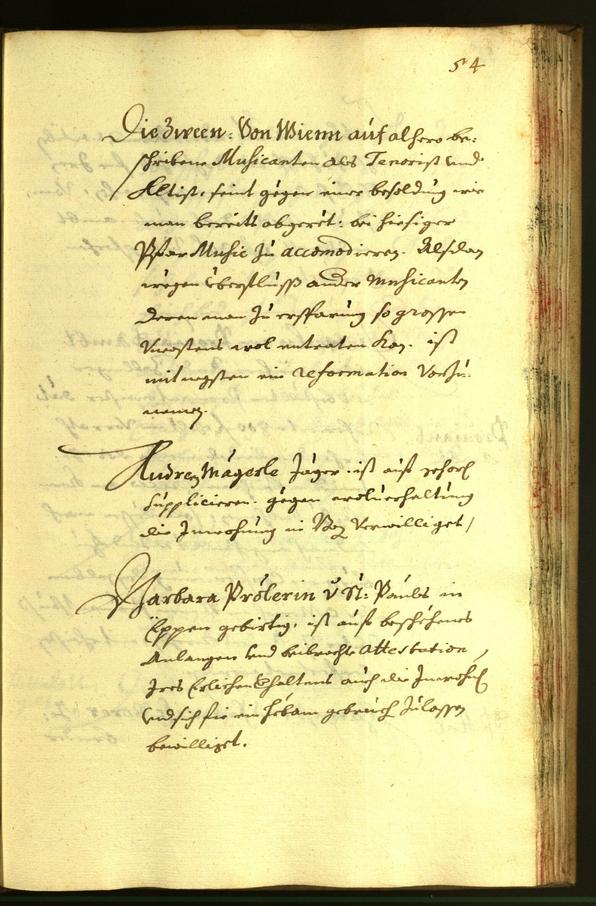 54
Die Zween: Von Wienn auf alhero be:
schribene Musicanten als Tenorist vnd
Altist, seint gegen einer besoldung wie
man bereits abgeret: bei hiesiger
Pfarr Music zu accomodieren. Alsdan
wegen Überfluss ander Musicanten
deren man zu ersparung so grossen
Vncostens wol entraten kan. ist
mitnegsten ein reformation Vorzu:
nemen.
Andre Mägerle Jäger ist auf gehors:
Supplicieren. gegen wolverhaltung
die Inwohung in Bozen verwilliget /
Barbara Prölerin v. St: Pauls in
Eppen gebirtig, ist auf beschehenes
Anlangen vnd beibrachte attestation
Ires Erlichen Verhaltens auch die Inwohung
vnd sich für ein hebam gebrauchen zulassen
bewilliget.